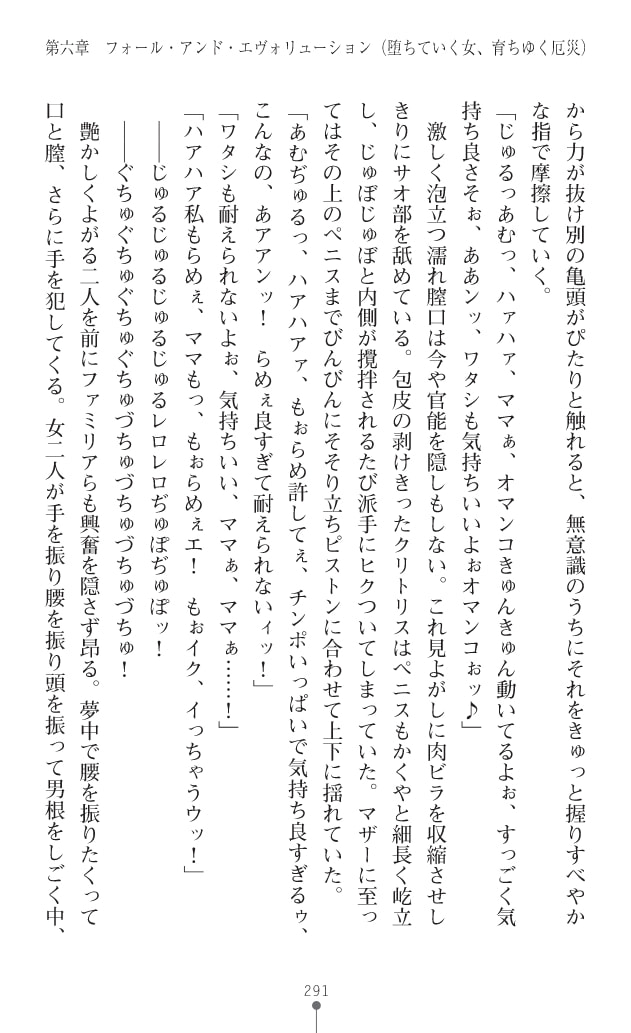 第六章　フォール・アンド・エヴォリューション（堕ちていく女、育ちゆく厄災）
から力が抜け別の亀頭がぴたりと触れると、無意識のうちにそれをきゅっと握りすべやか
な指で摩擦していく。
「じゅるっあむっ、ハァハァ、ママぁ、オマンコきゅんきゅん動いてるよぉ、すっごく気
持ち良さそぉ、ああンッ、ワタシも気持ちいいよぉオマンコぉッ♪」
激しく泡立つ濡れ膣口は今や官能を隠しもしない。これ見よがしに肉ビラを収縮させし
きりにサオ部を舐めている。包皮の剥けきったクリトリスはペニスもかくやと細長く屹立
し、じゅぽじゅぽと内側が攪拌されるたび派手にヒクついてしまっていた。マザーに至っ
てはその上のペニスまでびんびんにそそり立ちピストンに合わせて上下に揺れていた。
「あむぢゅるっ、ハアハアァ、もぉらめ許してぇ、チンポいっぱいで気持ち良すぎるゥ、
こんなの、あアアンッ！　らめぇ良すぎて耐えられないィッ！」
「ワタシも耐えられないよぉ、気持ちいい、ママぁ、ママぁ……！」
「ハアハア私もらめぇ、ママもっ、もぉらめぇエ！　もぉイク、イっちゃうウッ！」
――じゅるじゅるじゅるじゅるレロレロぢゅぽぢゅぽッ！
――ぐちゅぐちゅぐちゅぐちゅづちゅづちゅづちゅづちゅ！
艶かしくよがる二人を前にファミリアらも興奮を隠さず昂る。夢中で腰を振りたくって
口と膣、さらに手を犯してくる。女二人が手を振り腰を振り頭を振って男根をしごく中、
291